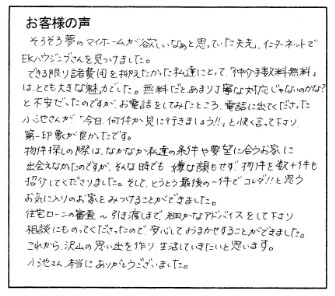 お客様の声
そろそろ夢のマイホームが欲しいなぁと思っていた矢先、インターネットで
EKハウジングさんを見つけました。
できる限り諸費用を抑えたかった私達にとって、「仲介手数料無料」
は、とても大きな魅力でした。無料だとあまり丁寧な対応じゃないのかな?
と不安だったのですが、お電話をしてみたところ、電話に出てくださった
小池さんが「今日、何件か見に行きましょう!!」と快く言って下さり
第一印象が良かったです。
物件探しの際は、なかなか私達の条件や要望に合うお家に
出会えなかったのですが、そんな時でも嫌な顔もせず物件を数十件も
紹介してくださりました。そして、とうとう最後の一件で"コレダ!!"と思う
お気に入りのお家をみつけることができました。
住宅ローンの審査〜引き渡しまで細かなアドバイスをして下さり
相談にものってくださったので安心しておまかせすることができました。
これから、沢山の思い出を作り生活していきたいと思います。
小池さん本当にありがとうございました。